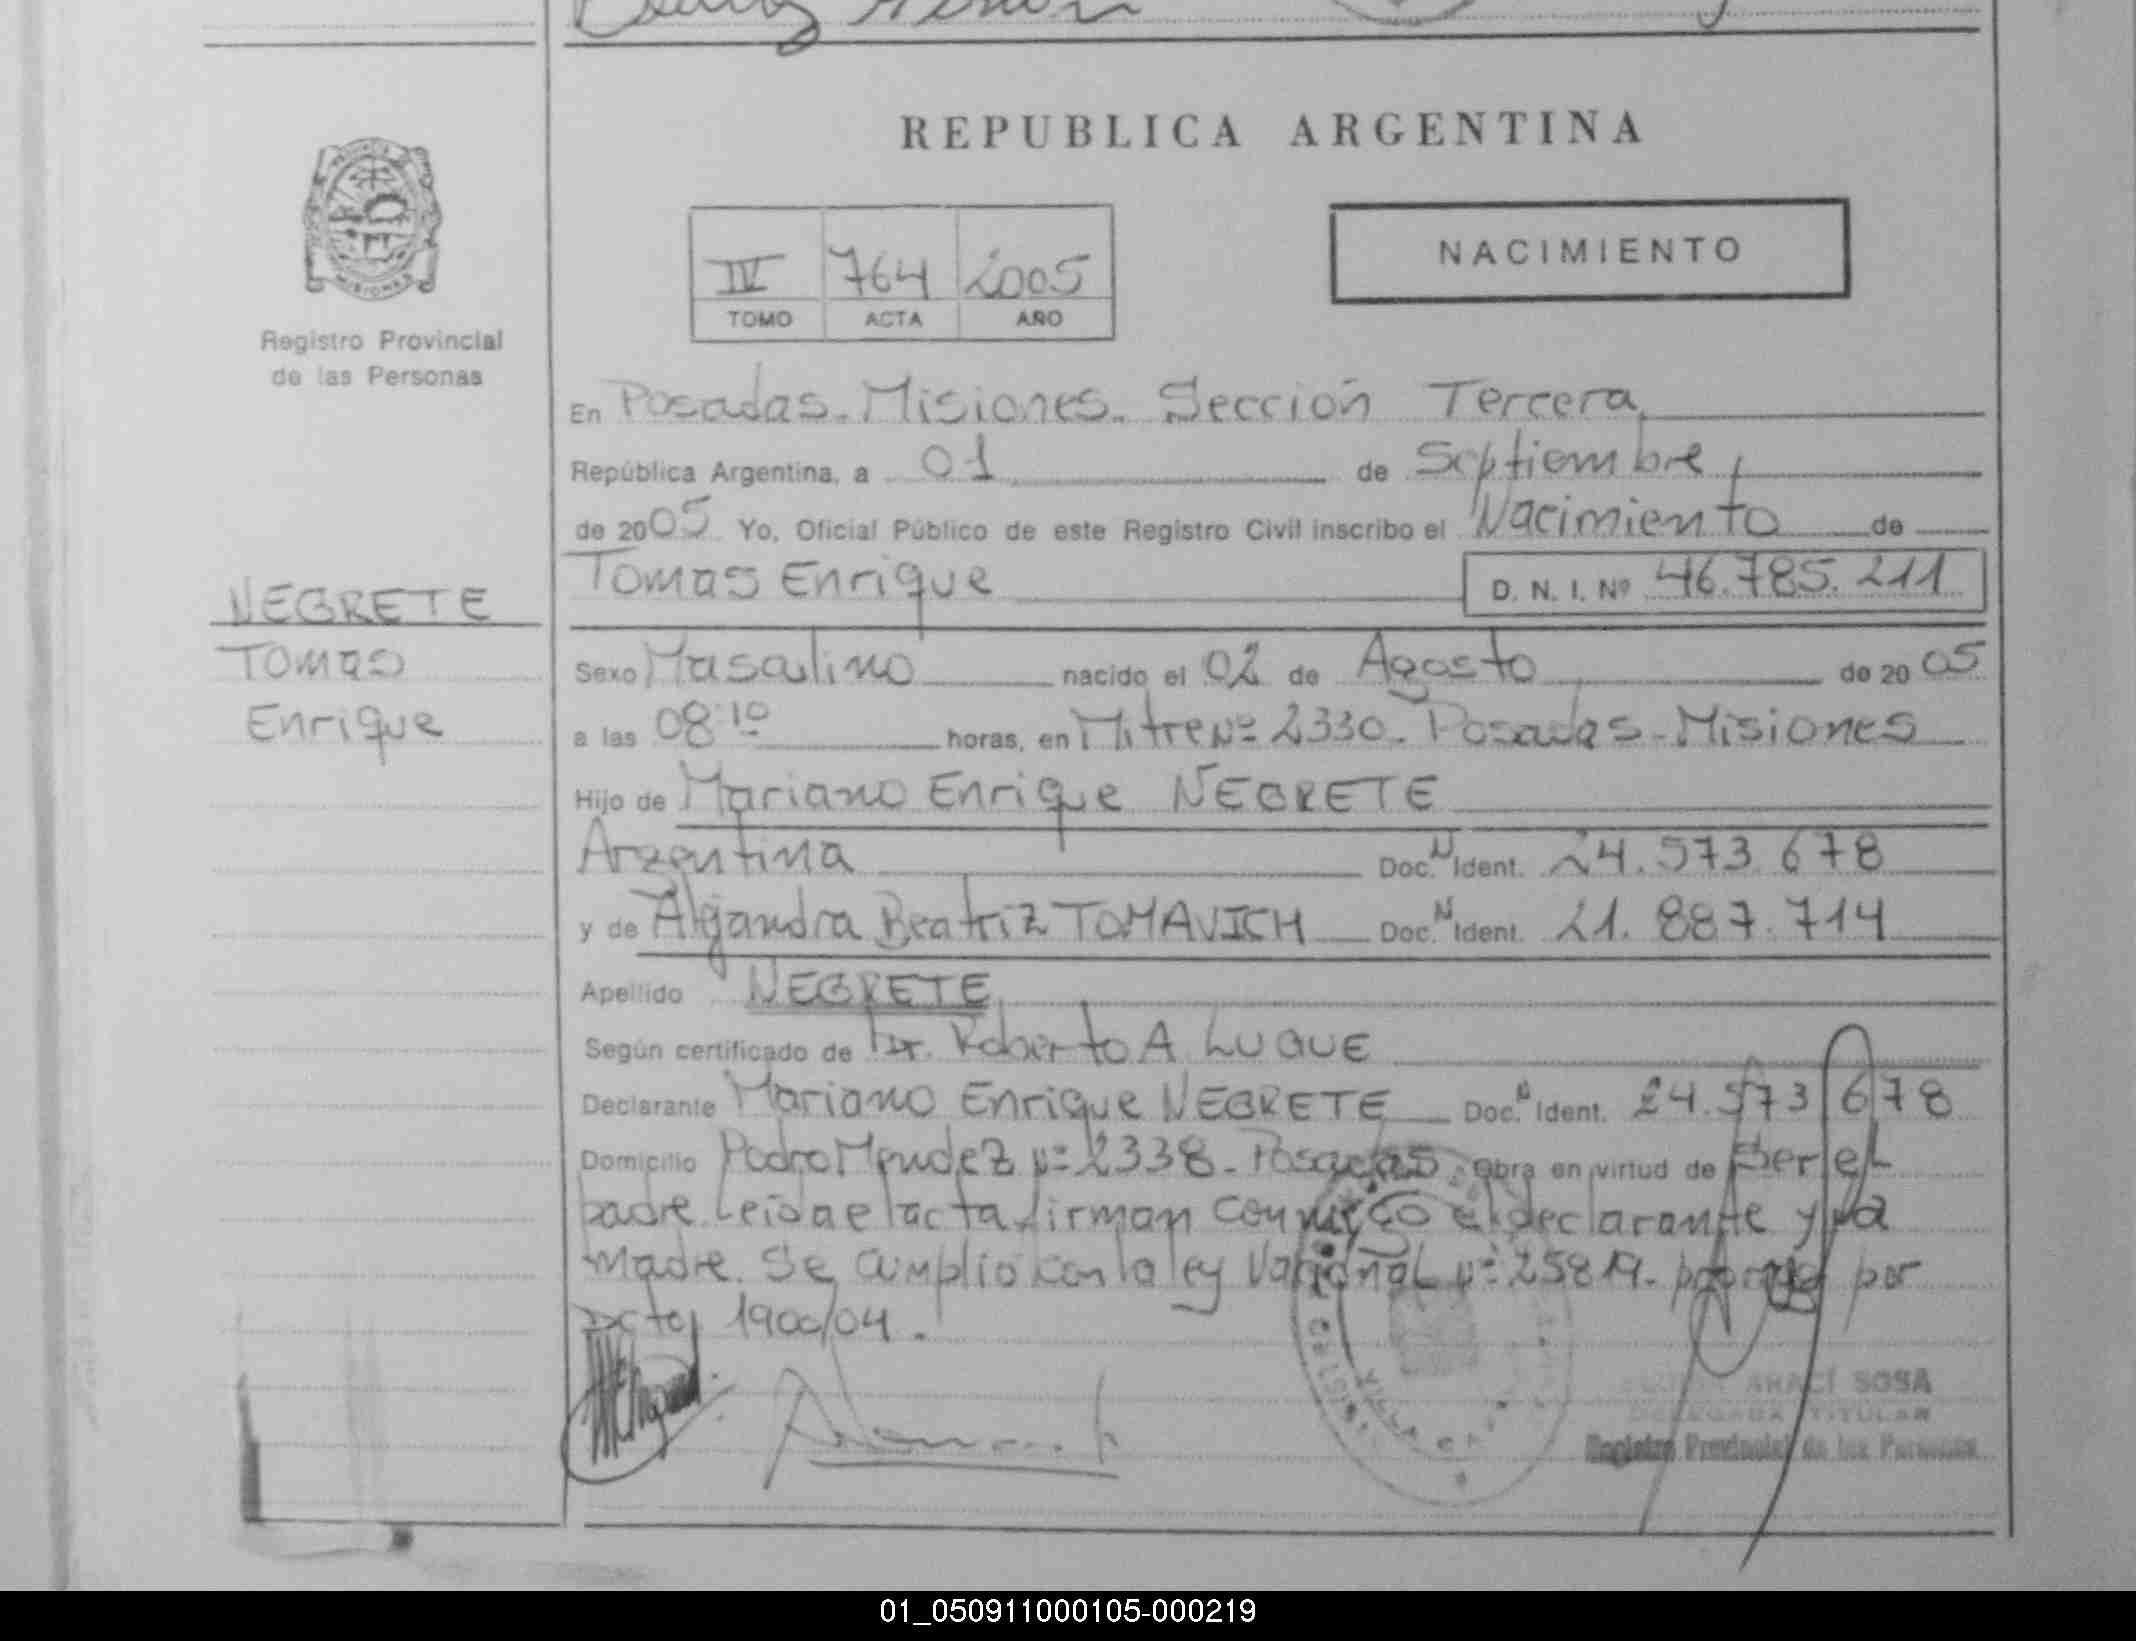 REPUBLICA ARGENTINA
NACIMIENTO
IV 764 2005
TOMO ACTA AÑO
Registro Provincial
de las Personas
NEGRETE
Tomas
Enrique
En Posadas - Misiones. Sección Tercera
República Argentina, a 01 de Septiembre
de 2005 Yo, Oficial Público de este Registro Civil inscribo el Nacimiento de
Tomas Enrique D. N. I. Nº 46.785.211
Sexo Masculino nacido el 02 de Agosto de 2005
a las 08:10 horas, en Mitre Nº 2330. Posadas - Misiones
Hijo de Mariano Enrique NEGRETE
Argentina Doc. N Ident. 24.573.678
y de Alejandra Beatriz TOMAVICH Doc. N Ident. 21.887.714
Apellido NEGRETE
Según certificado de Dr. Roberto A LUQUE
Declarante Mariano Enrique NEGRETE Doc. N Ident. 24.573.678
Domicilio Pedro Mendez Nº 2338 - Posadas Obra en virtud de Ser el
padre. Leida el acta, firman conmigo el declarante y la
madre. Se cumplio con la ley Nacional Nº 25819. por
Dcto 1900/04.
ARACÍ SOSA
DELEGADA TITULAR
Registro Provincial de las Personas
VILLA
01_050911000105-000219